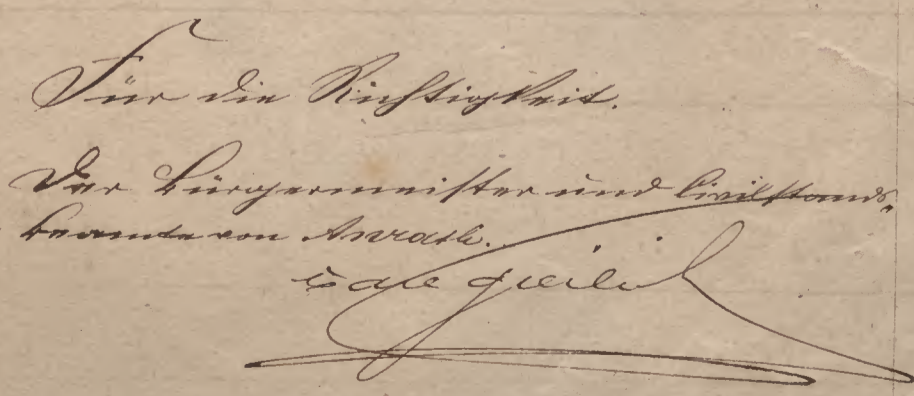 Für die Richtigkeit.
Der Bürgermeister und Civilstands-
beamte von Anrath.